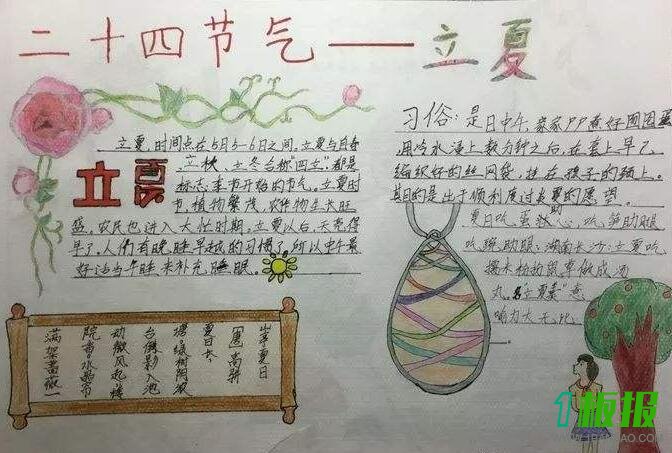 二十四节气——立夏
立夏,时间点在5月5-6日之间。立夏与
立秋、立冬合称"四立"都是
标志季节开始的节气。立夏时
节,植物繁茂,农作物生长旺
盛,农民也进入大忙时期。立夏以后,天亮得
早了。人们有晚睡早起的习惯了,所以中午最
好适当午睡来补充睡眠
立夏
习俗:是日中午,家家户户煮好囫囵蛋
用冷水浸上数分钟之后,在套上早
编织好的丝网袋,挂在孩子的颈上。
其目的是出于顺利度过炎夏的愿望。
夏日吃蛋助心,吃笋助腿
吃豌助眼;湖南长沙:立夏吃
做成汤
丸,
喻力大无比。
山亭夏日
【唐】高骈
夏日长
楼台倒影入池
动微风起
满架蔷薇一
院香
1板报
WWW.1BANBAO.COM